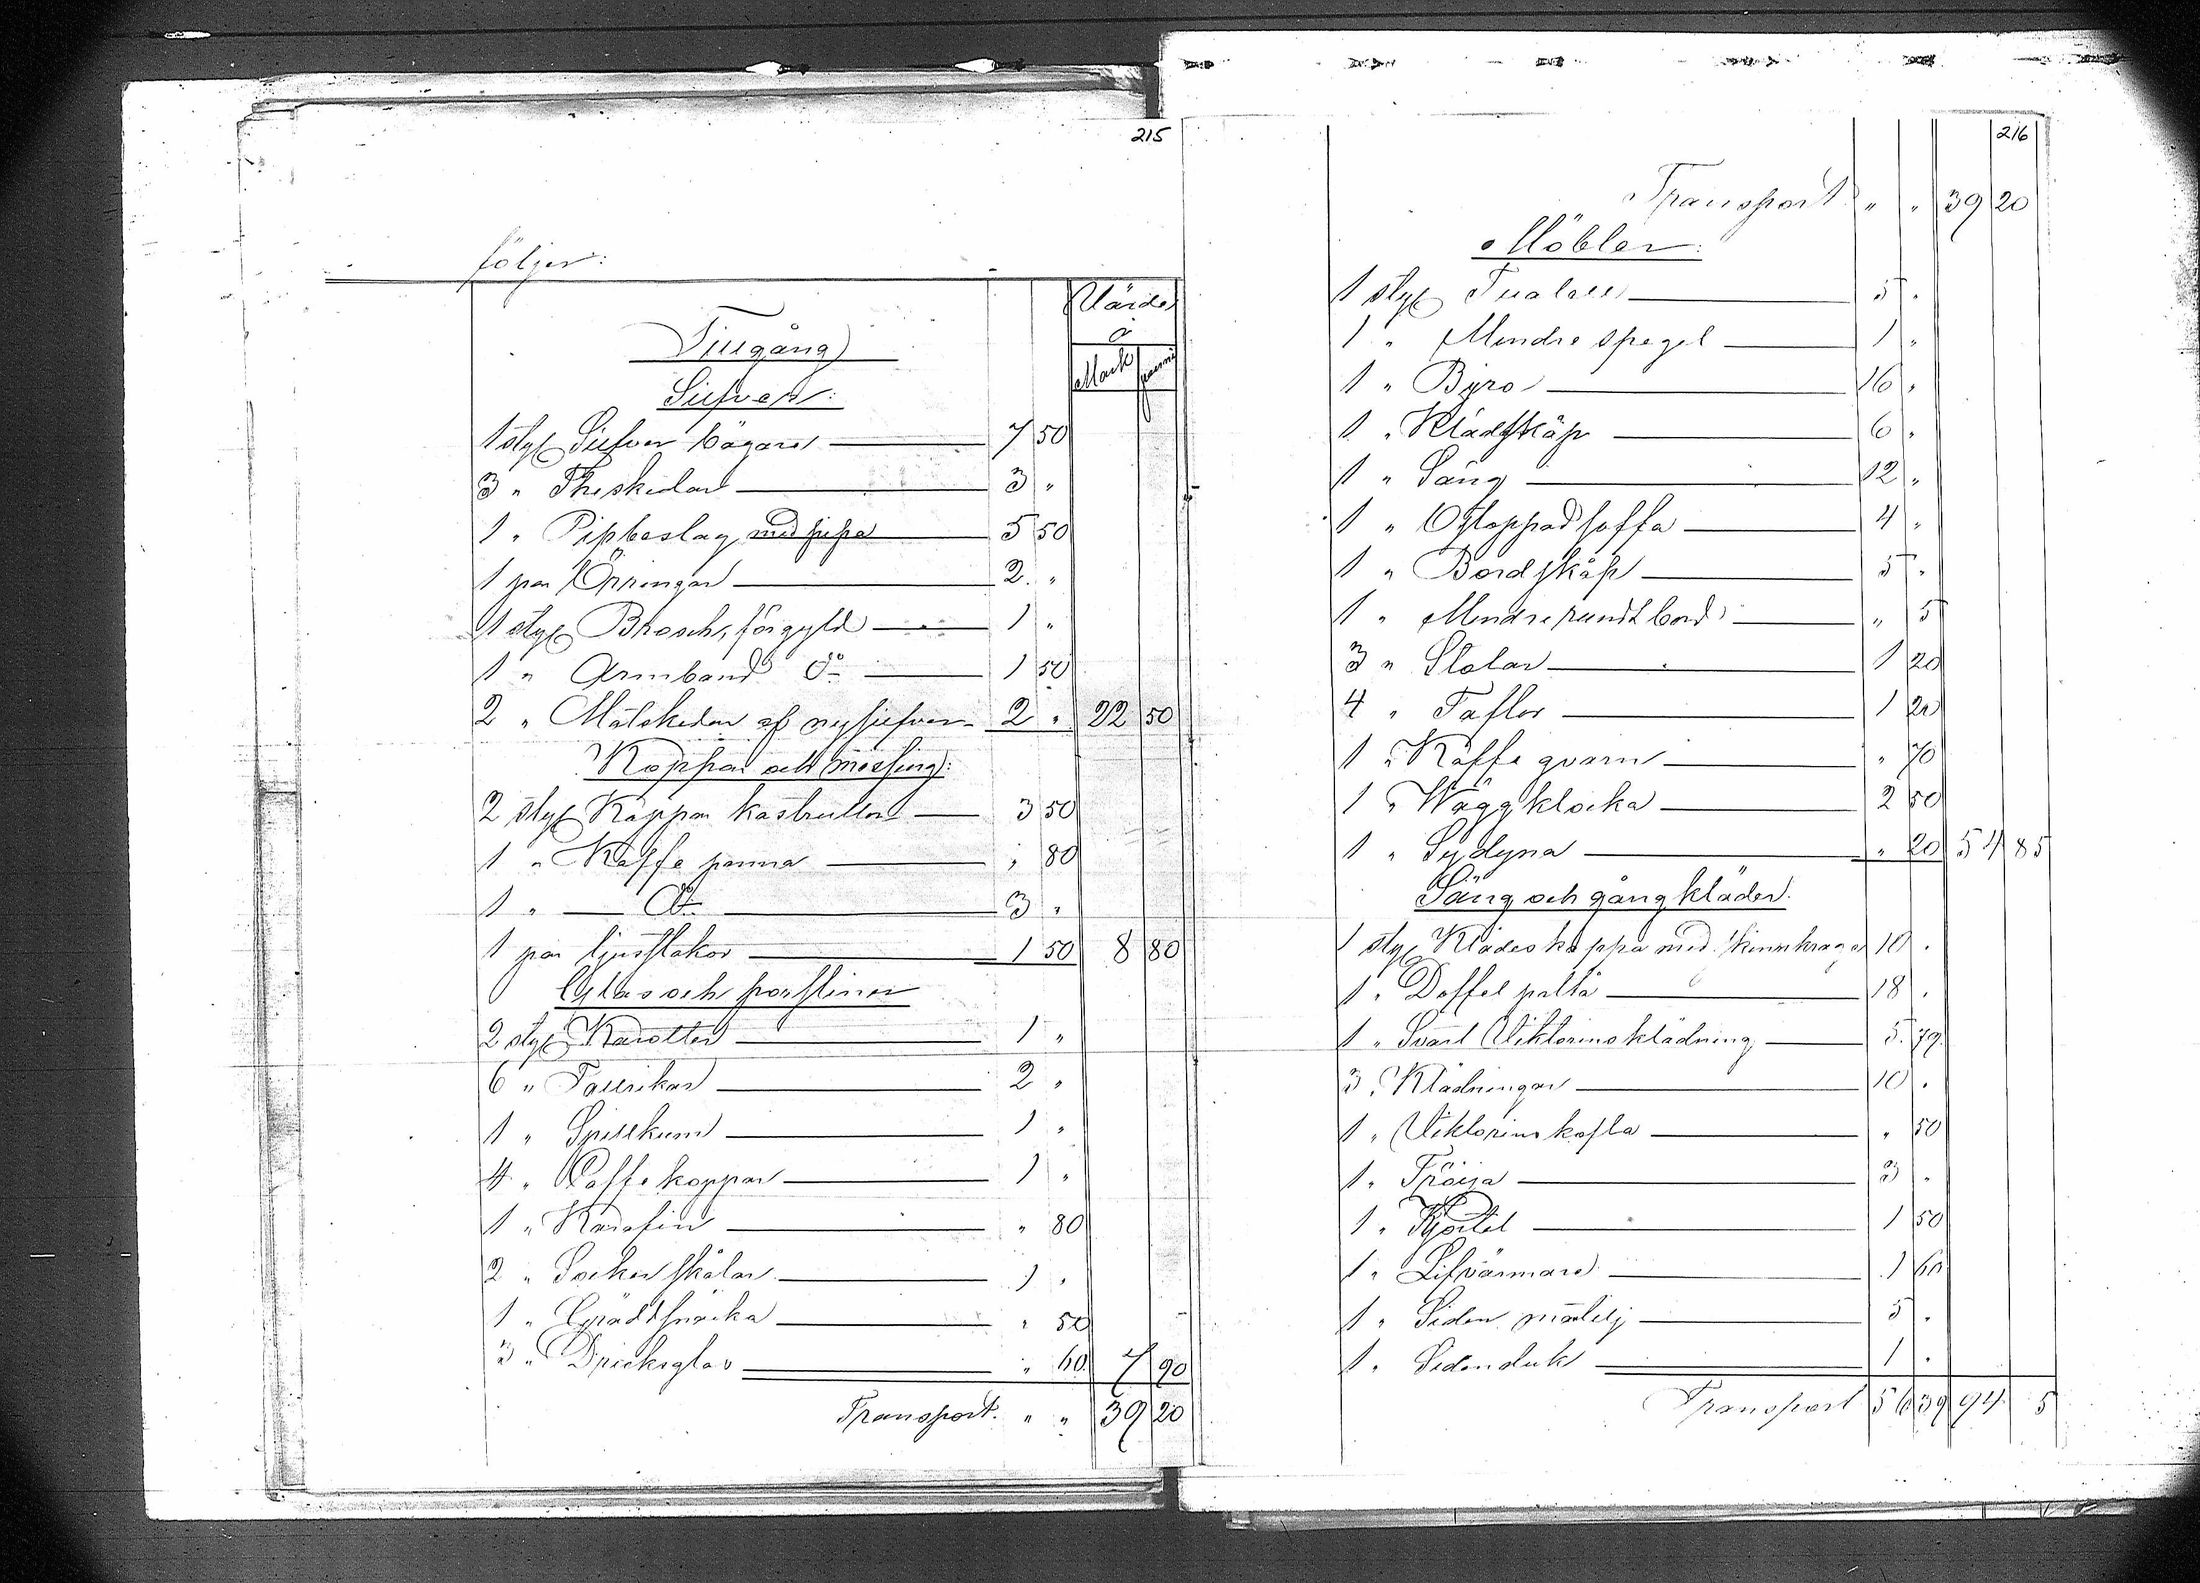 215
följer:
Värde
Tillgång
á
Mark penni
Silfver:
1 styck Silfver bägare 7 50
3 " Theskedar 3 "
1 " Pipbeslag med pipa 5 50
1 par Örringar 2 "
1 styck Brosch, förgyld 1 "
1 " Armband do 1 50
2 " Matskedar af nysilfver 2 " 22 50
Koppar och messing:
2 styck Koppar kastruller 3 50
1 " Kaffe panna " 80
1 " do 3 "
1 par ljusstakar 1 50 8 80
Glas och porsliner
2 styck Karotter 1 "
6 " Tallrikar 2 "
1 " Spillkum 1 "
4 " Caffe koppar 1 "
1 " Karafin " 80
2 " Socker skålar 1 "
1 " Gräddsnäcka " 50
3 " Dricksglas " 60 7 90
Transport. " " 39 20
216
Transport " " 39 20
Möbler:
1 styck Tualett 5 "
1 " Mindre spegel 1 "
1 " Byro 16 "
1 " Klädskåp 6 "
1 " Säng 12 "
1 " Ostoppad soffa 4 "
1 " Bordskåp 5 "
1 " Mindre rundt bord " 5
3 " Stolar 1 20
4 " Taflor 1 20
1 " Kaffe qvarn " 70
1 " Väggklocka 2 50
1 " Sydyna " 20 54 85
Säng och gångkläder.
1 styck Klädeskappa med skinnkrage 10 "
1 " Doffel paltå 18 "
1 " Svart Viktorinsklädning 5 79
3 " Klädningar 10 "
1 " Viktorins kofta " 50
1 " Tröija 3 "
1 " Kjortel 1 50
1 " Lifvärmare 1 60
1 " Siden mantilj 5 "
1 " Sidenduk 1 "
Transport 56 39 94 5